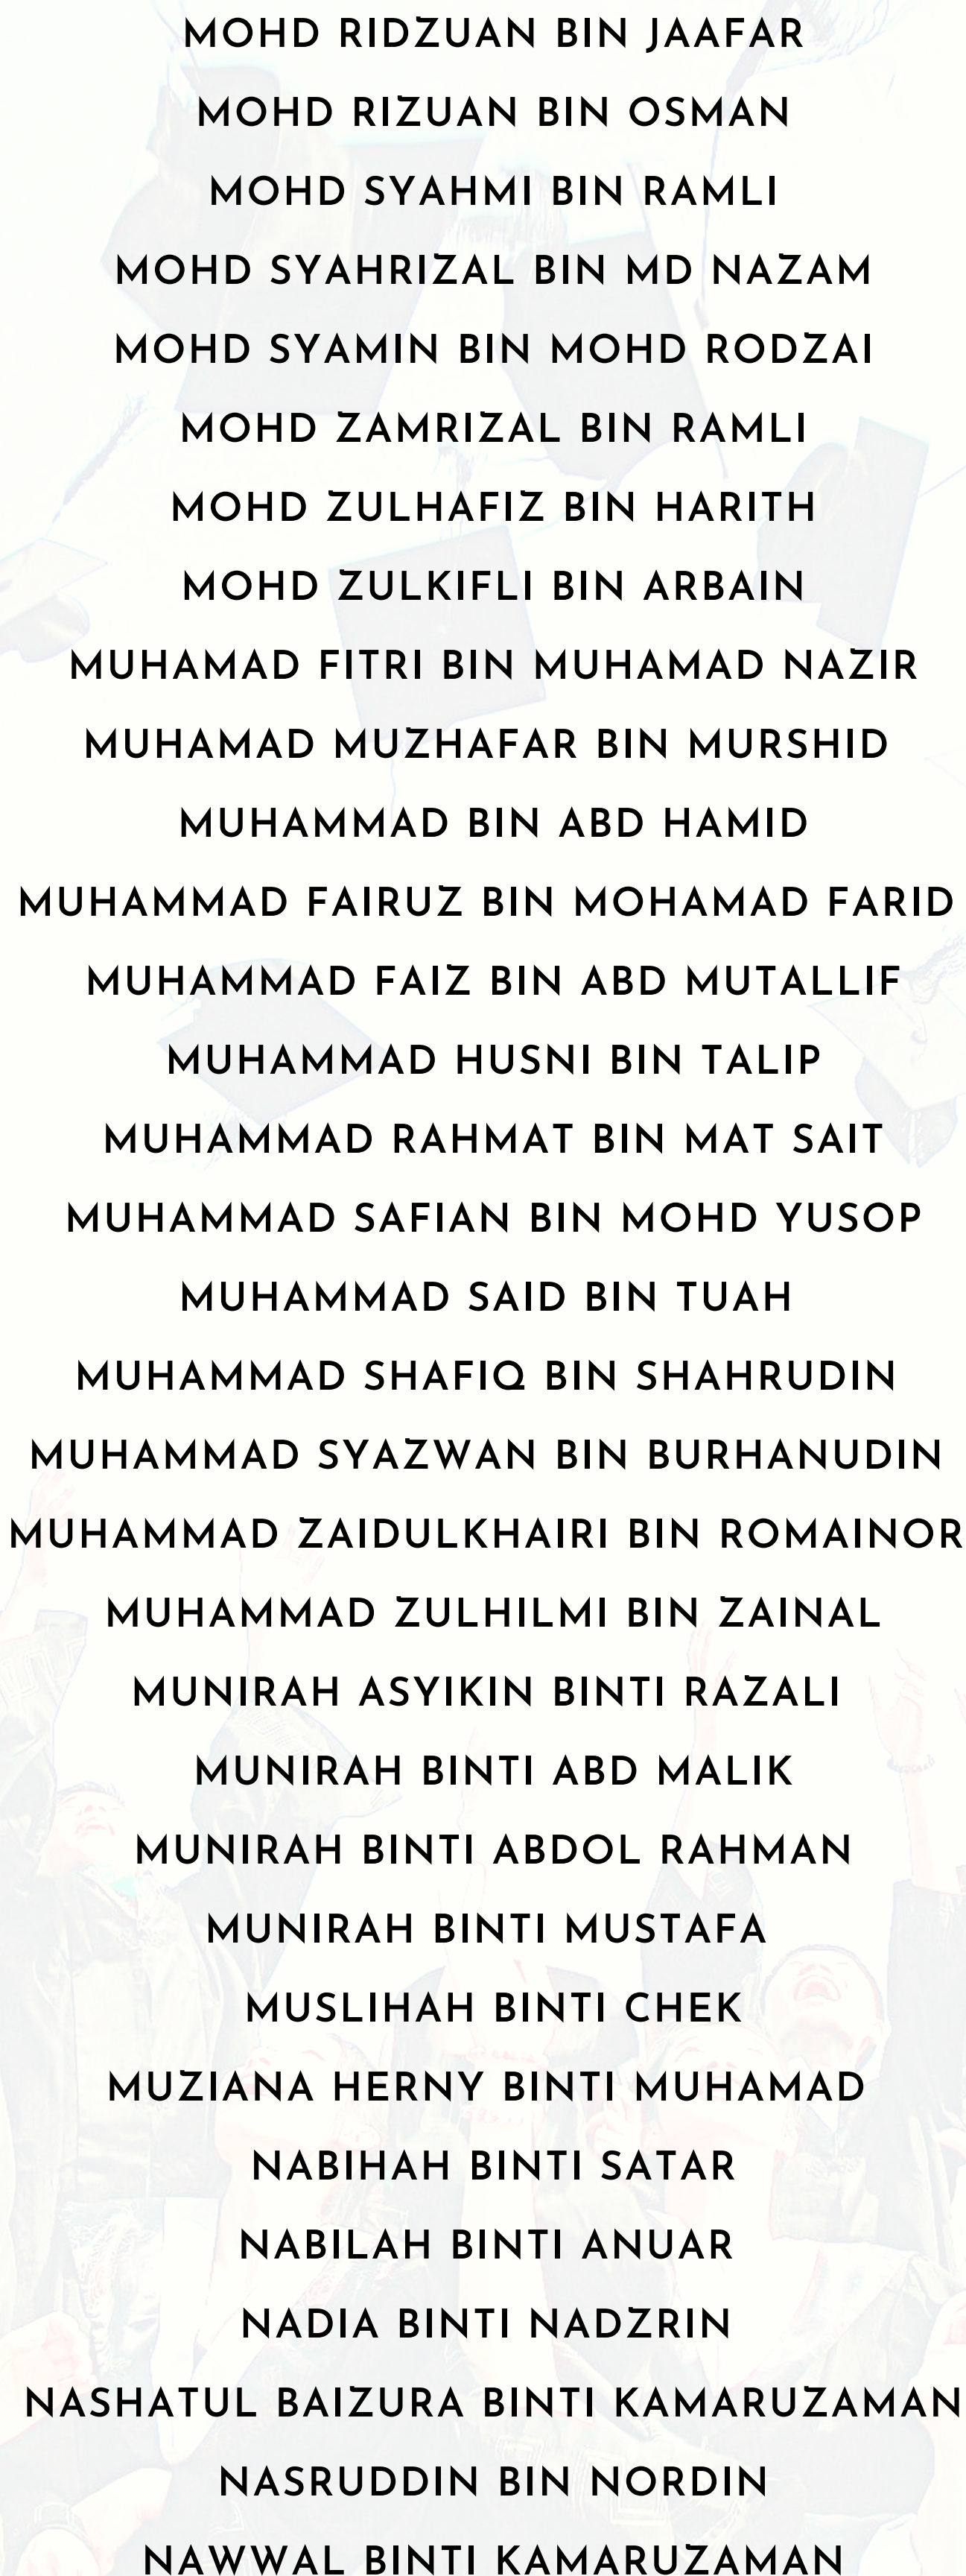 MOHD RIDZUAN BIN JAAFAR
MOHD RIZUAN BIN OSMAN
MOHD SYAHMI BIN RAMLI
MOHD SYAHRIZAL BIN MD NAZAM
MOHD SYAMIN BIN MOHD RODZAI
MOHD ZAMRIZAL BIN RAMLI
MOHD ZULHAFIZ BIN HARITH
MOHD ZULKIFLI BIN ARBAIN
MUHAMAD FITRI BIN MUHAMAD NAZIR
MUHAMAD MUZHAFAR BIN MURSHID
MUHAMMAD BIN ABD HAMID
MUHAMMAD FAIRUZ BIN MOHAMAD FARID
MUHAMMAD FAIZ BIN ABD MUTALLIF
MUHAMMAD HUSNI BIN TALIP
MUHAMMAD RAHMAT BIN MAT SAIT
MUHAMMAD SAFIAN BIN MOHD YUSOP
MUHAMMAD SAID BIN TUAH
MUHAMMAD SHAFIQ BIN SHAHRUDIN
MUHAMMAD SYAZWAN BIN BURHANUDIN
MUHAMMAD ZAIDULKHAIRI BIN ROMAINOR
MUHAMMAD ZULHILMI BIN ZAINAL
MUNIRAH ASYIKIN BINTI RAZALI
MUNIRAH BINTI ABD MALIK
MUNIRAH BINTI ABDOL RAHMAN
MUNIRAH BINTI MUSTAFA
MUSLIHAH BINTI CHEK
MUZIANA HERNY BINTI MUHAMAD
NABIHAH BINTI SATAR
NABILAH BINTI ANUAR
NADIA BINTI NADZRIN
NASHATUL BAIZURA BINTI KAMARUZAMAN
NASRUDDIN BIN NORDIN
NAWWAL BINTI KAMARUZAMAN